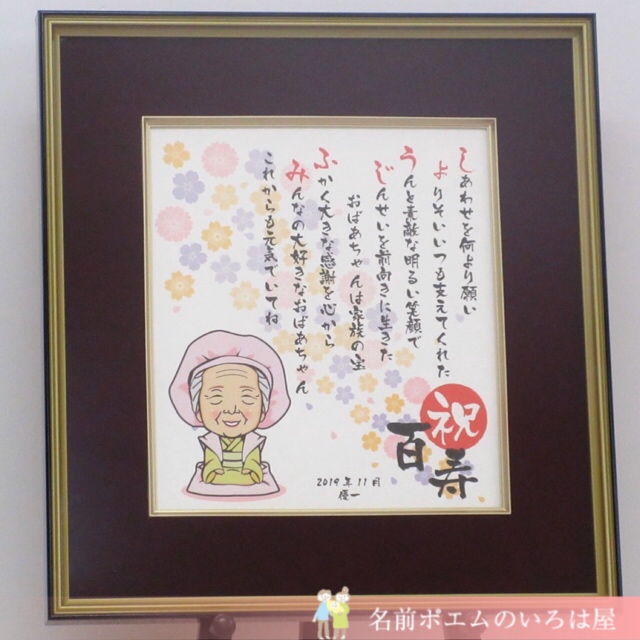 しあわせを何より願い
よりそいいつも支えてくれた
うんと素敵な明るい笑顔で
じんせいを前向きに生きた
おばあちゃんは家族の宝
ふかく大きな感謝を心から
みんなの大好きなおばあちゃん
これからも元気でいてね
祝
百寿
2019年11月
優一
名前ポエムのいろは屋